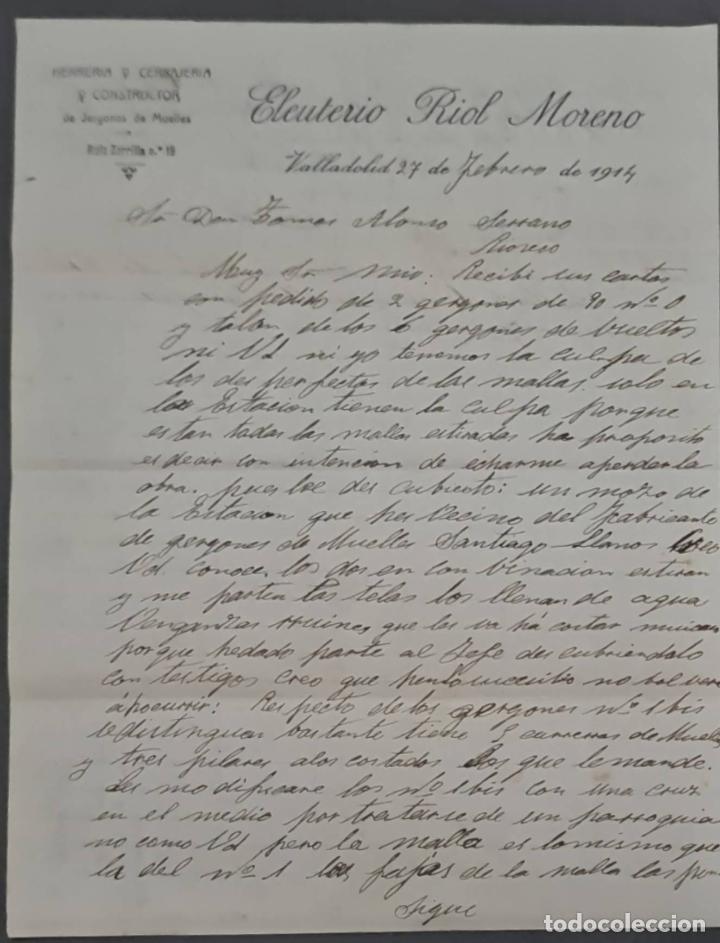 HERRERIA Y CERRAJERIA
Y CONSTRUCTOR
de Jergones de Muelles
Ruiz Zorrilla n.º 19
Eleuterio Riol Moreno
Valladolid 27 de Febrero de 1914
Sr Don Tomas Alonso Serrano
Rioseco
Muy Sr mio: Recibi sus cartas
con pedido de 2 gergones de 90 nº 0
y talon de los 6 gergones de bueltos
ni Vd ni yo tenemos la culpa de
los des perfectos de las mallas. solo en
la Estacion tienen la culpa porque
estan todas las mallas estiradas ha proposito
es decir con intencion de echarme aperder la
obra. pues loe des cubierto: un mozo de
la Estacion que hes Vecino del Fabricante
de gergones de Muelles Santiago Llanos
Vd. conoce. los dos en con binacion estiran
y me parten las telas los llenan de agua
Venganzas rruines que les va há costar
porque hedado parte al Jefe des cubriendolo
con testigos creo que
áhocurrir: Respecto de los gergones nº 1 bis
se distinguen bastante tiene 5 carreras de Muelles
y tres pilares alos costados Los que le mande.
Les modificare los nº 1 bis con una cruz
en el medio por tratarse de un parroquia
no como Vd pero la malla es lo mismo que
la del nº 1 las fajas de la malla las
Sigue
todocoleccion.net